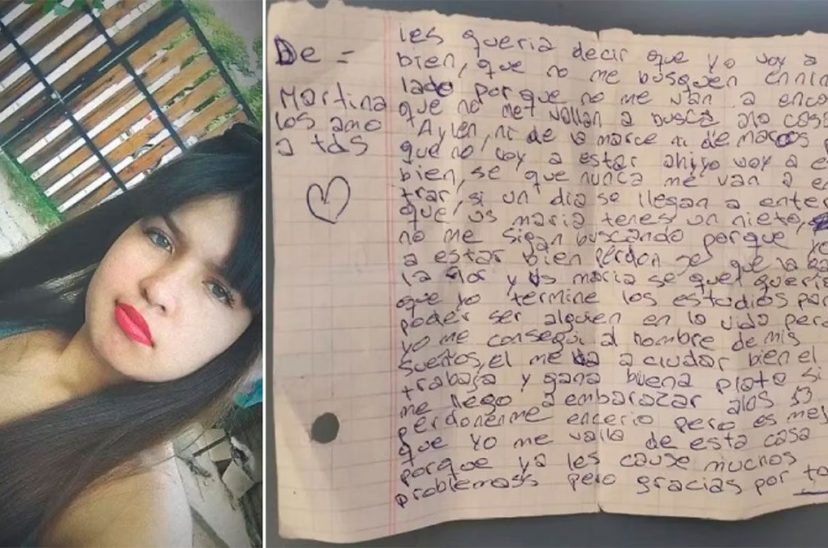 De =
Martina
los amo
a tds
les queria decir que yo voy a
bien, que no me busquen en nin
lado por que no me van a enco
que no me vallan a busca a lo casa
Aylen, ni de la marce ni de marcos p
que no, voy a estar ahi yo voy a e
bien, se que nunca me van a en
trar, si un dia se llegan a enter
que vs maria tenes un nieto,
no me sigan buscando porque yo
a estar bien perdon se que la ca
la flor y vs maria se que queria
que yo termine los estudios par
poder ser alguien en la vida pero
yo me consegui al hombre de mis
sueños, el me va a ciudar bien el
trabaja y gana buena plata si
me llego a embarazar a los 13
perdonenme encerio pero es mej
que yo me valla de esta casa
porque ya les cause muchos
problemass pero gracias por to